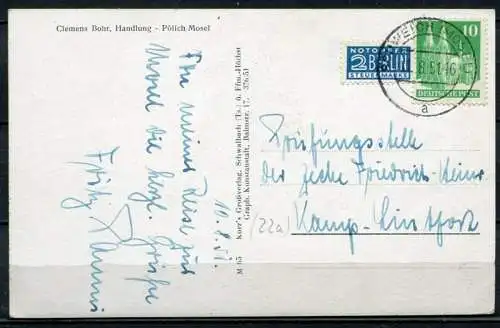 Clemens Bohr, Handlung - Pölich-Mosel
NOTOPFER
2 BERLIN
STEUERMARKE
10
DEUTSCHE POST
SCHWEICH
8.51.-16
a
Von meiner Reise zur
Mosel die herzl. Grüße
Fritz
10.8.51.
Kurr's Großverlag, Schwalbach (Ts.) ü. Ffm.-Höchst
Graph. Kunstanstalt, Bahnstr. 17.
M 65
Prüfungsstelle
der Zeche Friedrich-Heinr.
(22a) Kamp-Lintfort